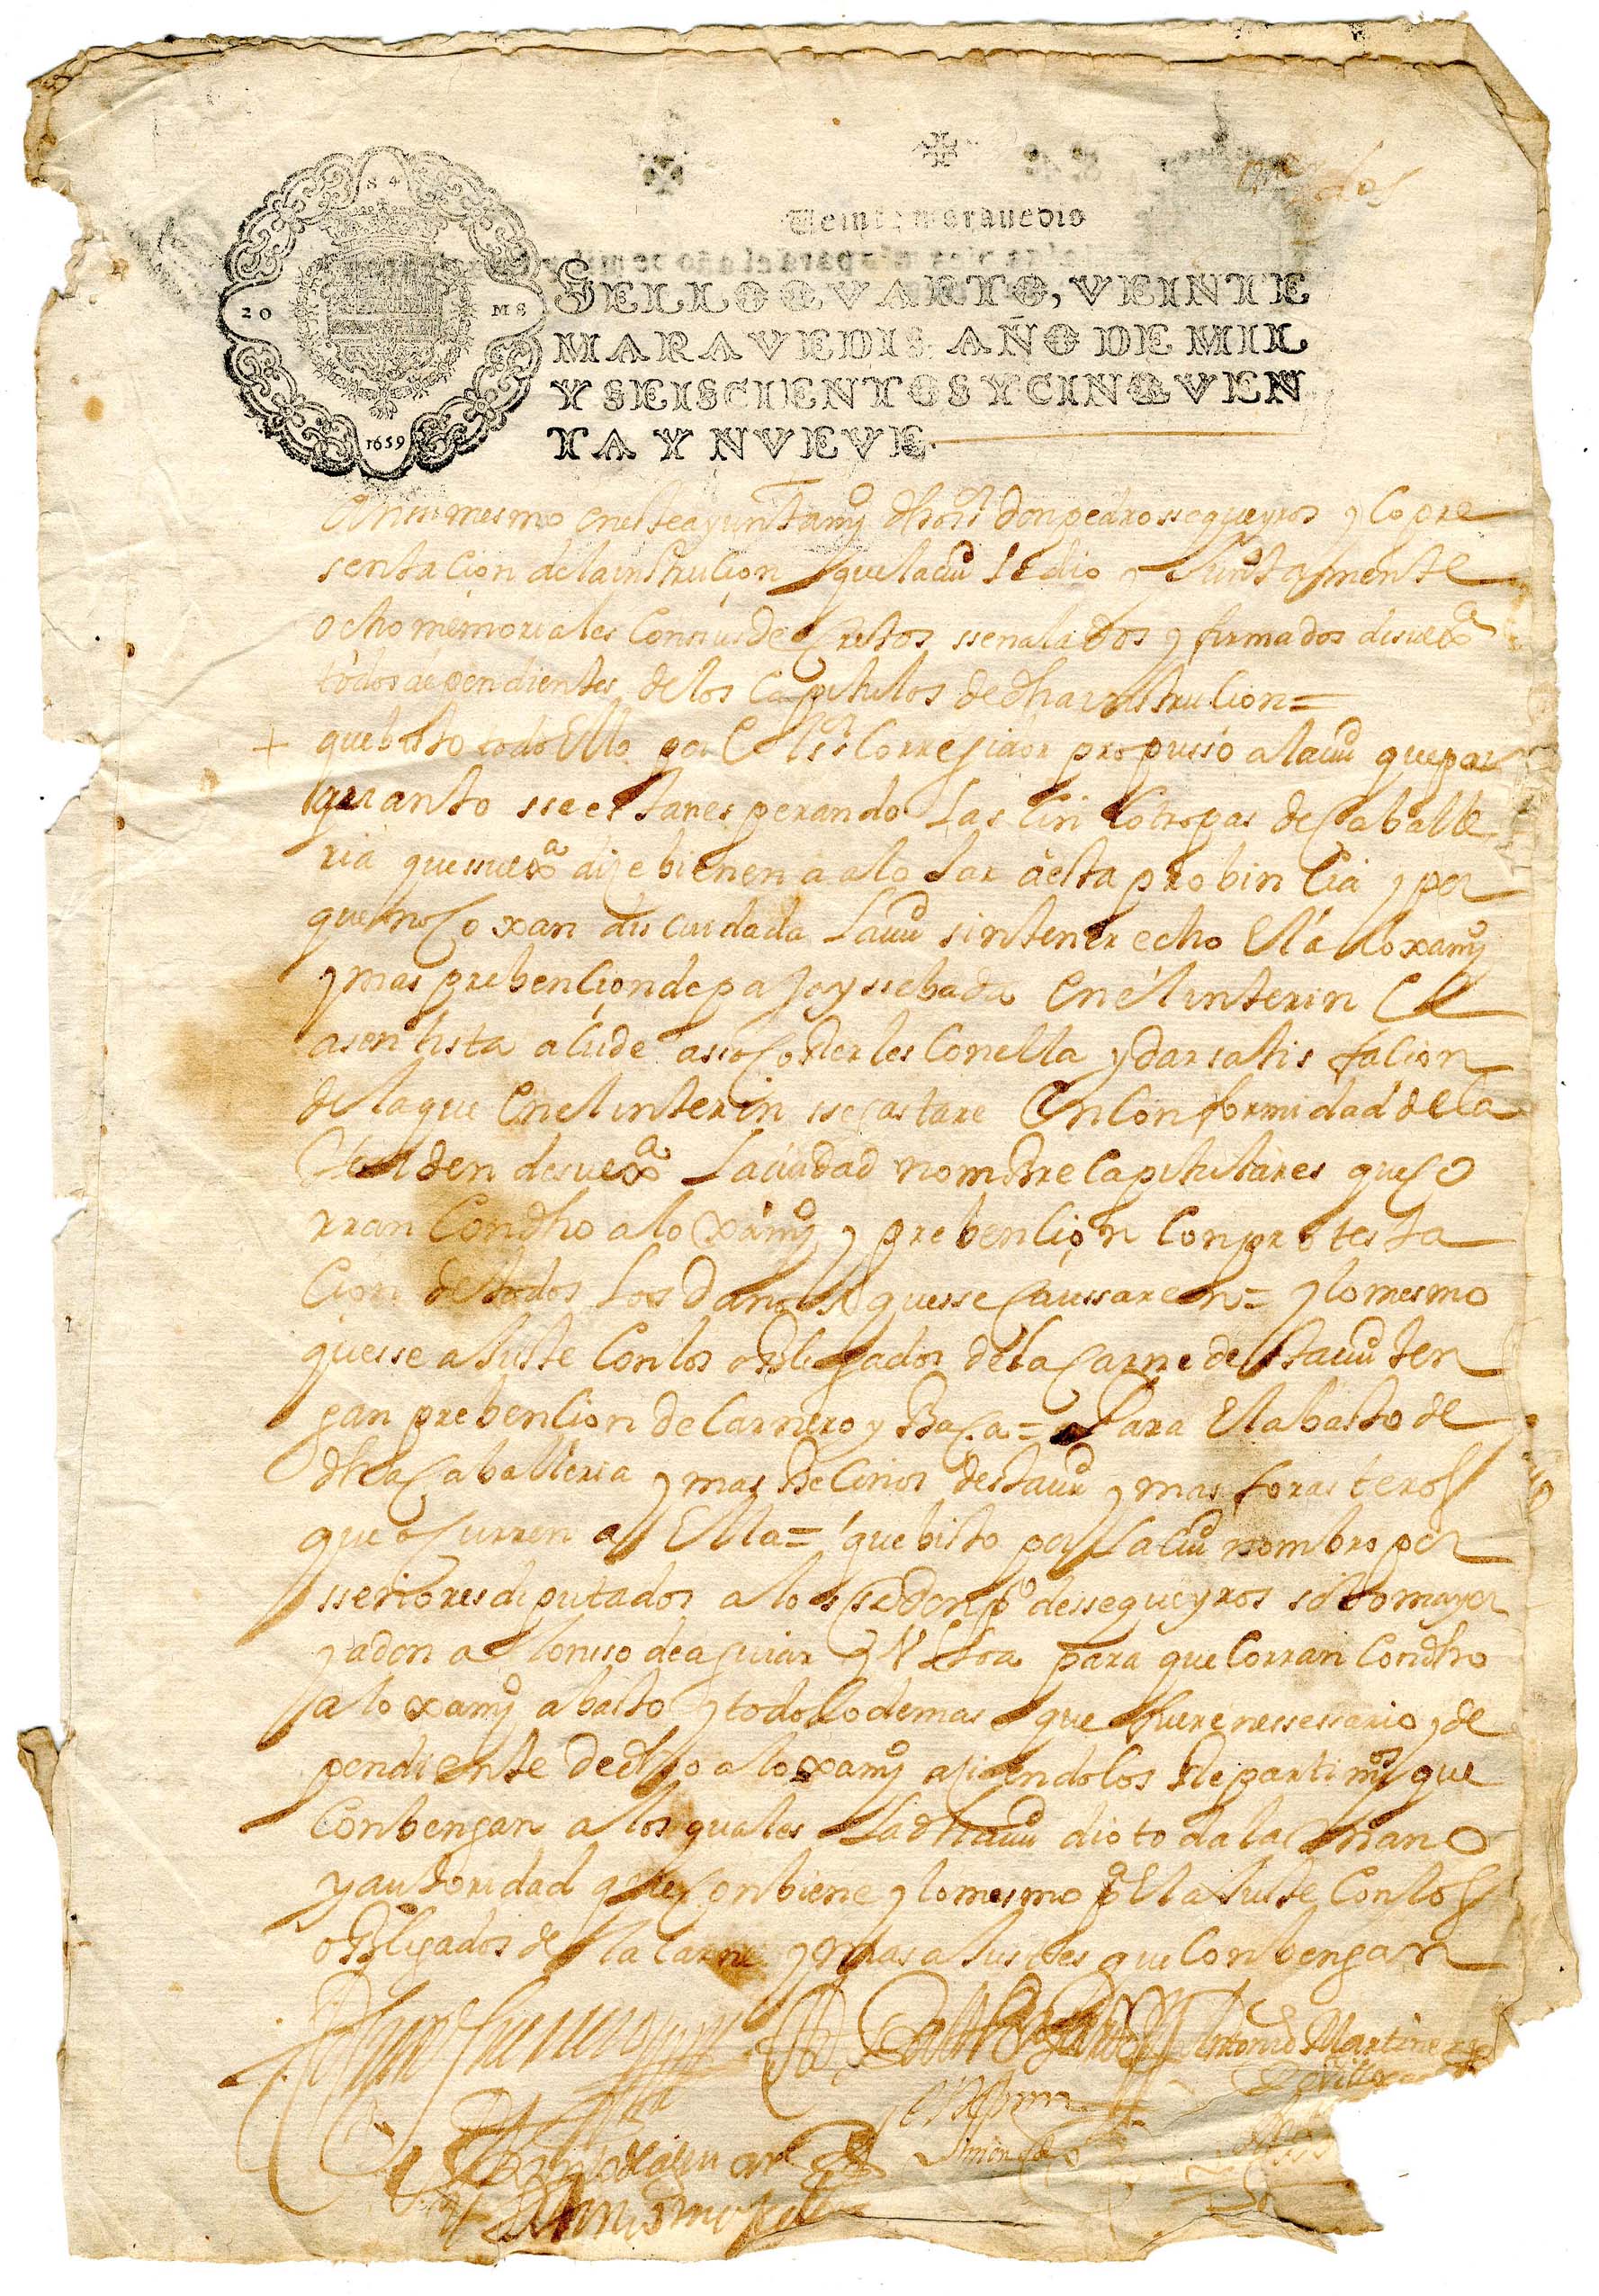 84
20 MS
1659
Veinte maravedis
SELLO QVARTO, VEINTE
MARAVEDIS AÑO DE MIL
Y SEISCIENTOS Y CINQVEN
TA Y NVEVE.
Ansimesmo eneste ayuntamº dho sr don pedro ssequeyros y Co pre
sentacion dela instrucion que laciud se dio y Juntamente
ocho memoriales Con sus decretos ssenalados y firmados de su exª
todos dependientes de los Capitulos de dha instrucion =
+ que bisto todo Ello por el sr Corregidor propusso a la ciud que por
quanto sse estan esperando Las cinco tropas de Caballe
ria que su exª dize bienen a aloxar a esta probincia y por
que no coxan discuidada La ciud sin tener echo El aloxamº
y mas prebencion de paja y ssebada En el interin El
asentista acude a socorrerles Con ella y dar satisfacion
de la que En el interin sse gastare En Conformidad de la
orden de su exª La ciudad nombre Capitulares que co
rran Con dho aloxamº y prebencion Con protesta
cion de todos Los Danos que sse Caussaren = y lo mesmo
que sse aJuste Con los obligados de la Carne desta ciud ten
gan prebencion de Carnero y Baca = Para El abasto de
dha Caballeria y mas Becinos desta ciud y mas forasteros
que ocurren a Ella = que bisto por La ciud nombro por
sseñores diputados a los sres don pº de ssequeyros sotomayor
y a don alonso de aguiar y Ulloa para que Corran Con dho
aloxamº abasto y todo Lo demas que fuere nessessario y de
pendiente de dho aloxamº aciendo los Repartimºs que
Conbengan a los quales La dha ciud dio toda la mano
y autoridad que Conbiene y lo mesmo pª El aJuste Con los
obligados de la Carne y mas aJustes que Conbengan
Antonio Martinez
de Villo